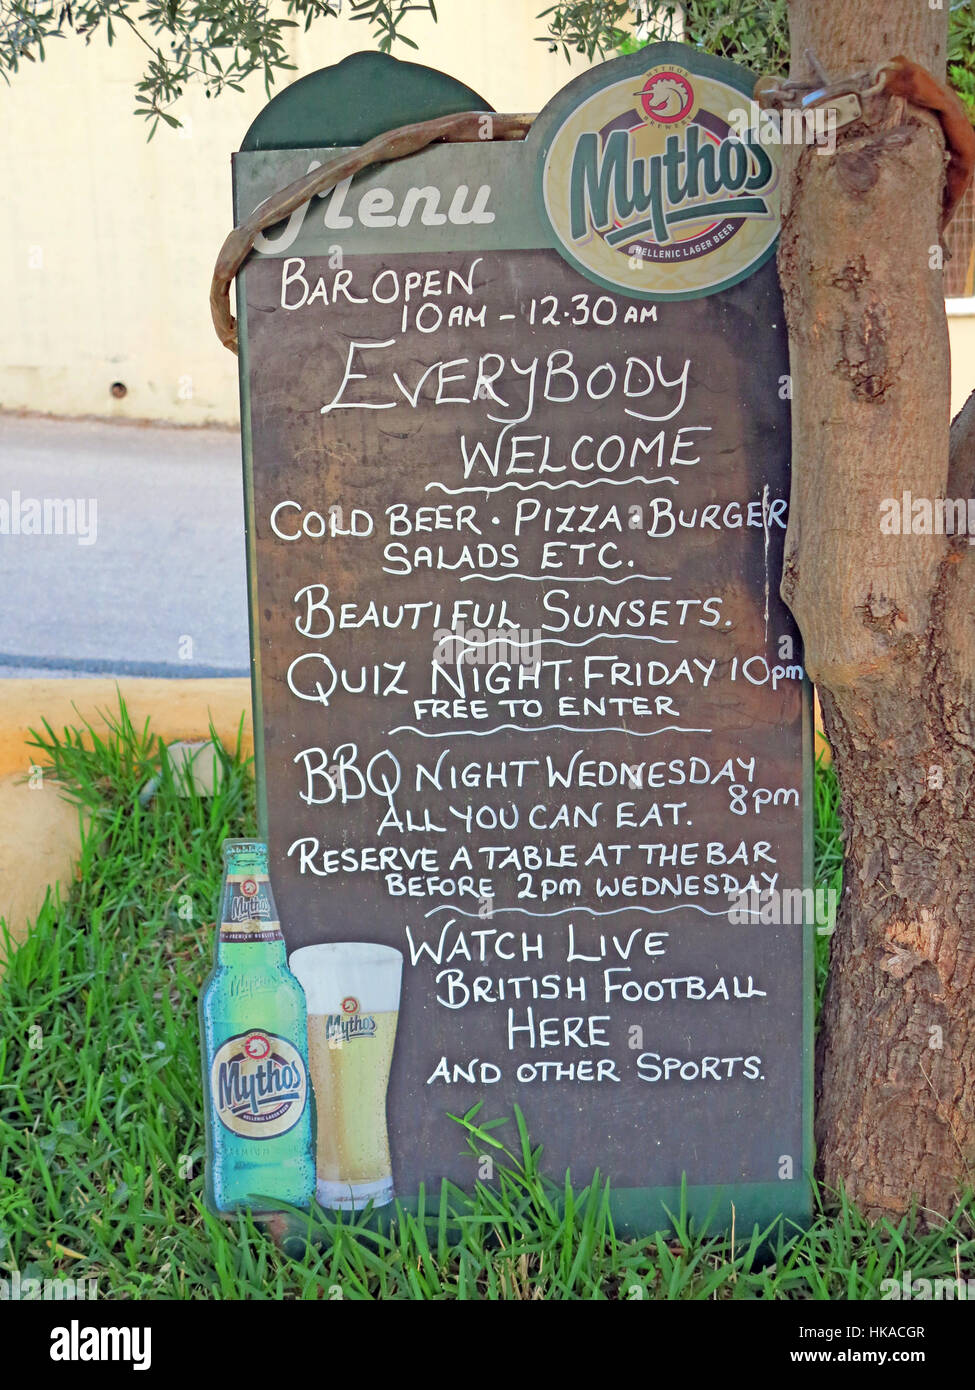 Menu
MYTHOS
BREWERY
Mythos
HELLENIC LAGER BEER
BAR OPEN
10AM - 12.30AM
EVERYBODY
WELCOME
COLD BEER · PIZZA · BURGER
SALADS ETC.
BEAUTIFUL SUNSETS.
QUIZ NIGHT. FRIDAY 10pm
FREE TO ENTER
BBQ NIGHT WEDNESDAY
8pm
ALL YOU CAN EAT.
RESERVE A TABLE AT THE BAR
BEFORE 2pm WEDNESDAY
WATCH LIVE
BRITISH FOOTBALL
HERE
AND OTHER SPORTS.
Mythos
PREMIUM QUALITY
Mythos
Mythos
Mythos
HELLENIC LAGER BEER
alamy
alamy stock photo
HKACGR
www.alamy.com